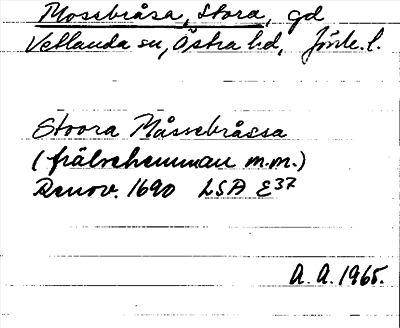 Mossbråsa, Stora, gd
Vetlanda sn, Östra hd, Jönk. l.
Stoora Måssebråssa
(frälsehemman m.m.)
Renov. 1690 LSA E37
A. A. 1965.